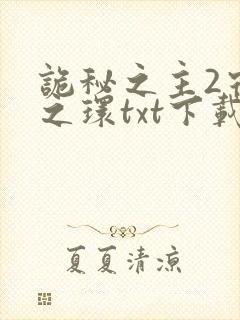 詭秘之主2
之環txt下載
夏夏清涼